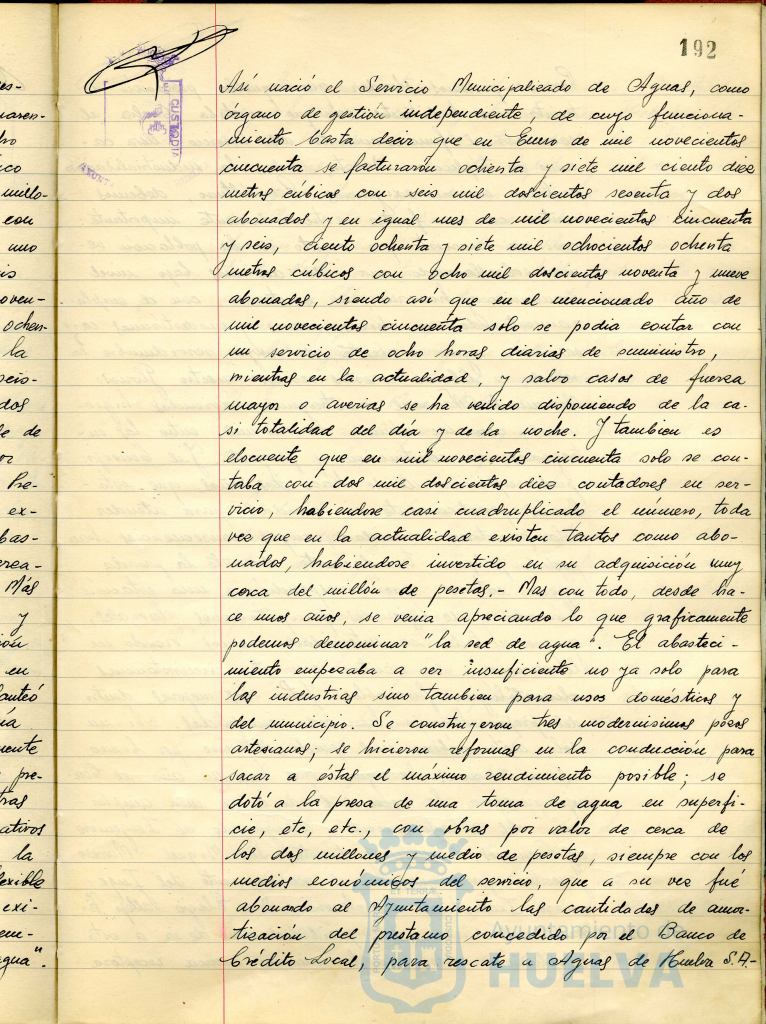 192
CUSTODIA
Así nació el Servicio Municipalizado de Aguas, como
órgano de gestión independiente, de cuyo funciona-
miento basta decir que en Enero de mil novecientos
cincuenta se facturaron ochenta y siete mil ciento diez
metros cúbicos con seis mil doscientos sesenta y dos
abonados y en igual mes de mil novecientos cincuenta
y seis, ciento ochenta y siete mil ochocientos ochenta
metros cúbicos con ocho mil doscientos noventa y nueve
abonados, siendo así que en el mencionado año de
mil novecientos cincuenta solo se podia contar con
un servicio de ocho horas diarias de suministro,
mientras en la actualidad, y salvo casos de fuerza
mayor o averias se ha venido disponiendo de la ca-
si totalidad del día y de la noche. Y tambien es
elocuente que en mil novecientos cincuenta solo se con-
taba con dos mil doscientos diez contadores en ser-
vicio, habiendose casi cuadruplicado el número, toda
vez que en la actualidad existen tantos como abo-
nados, habiendose invertido en su adquisición muy
cerca del millón de pesetas.- Mas con todo, desde ha-
ce unos años, se venia apreciando lo que graficamente
podemos denominar "la sed de agua". El abasteci-
miento empezaba a ser insuficiente no ya solo para
las industrias sino tambien para usos domésticos y
del municipio. Se construyeron tres modernisimos pozos
artesianos; se hicieron reformas en la conducción para
sacar a éstas el máximo rendimiento posible; se
dotó a la presa de una toma de agua en superfi-
cie, etc, etc., con obras por valor de cerca de
los dos millones y medio de pesetas, siempre con los
medios económicos del servicio, que a su vez fué
abonando al Ayuntamiento las cantidades de amor-
tización del prestamo concedido por el Banco de
Crédito Local, para rescate a Aguas de Huelva S.A.-
Ayuntamiento de
HUELVA